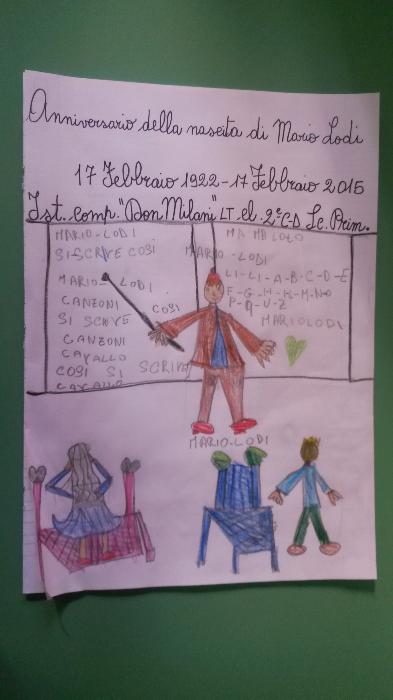 Anniversario della nascita di Mario Lodi
17 Febbraio 1922-17 Febbraio 2015
Ist. comp. "Don Milani" LT el. 2ª C-D Sc. Prim.
MARIO-LODI
SISCRIVE COSÍ
MARIO-LODI
CANZONI
SI SCRIVE
CANZONI
CAVALLO
COSI SI SCRIVE
CAVALLO
COSI
MARIO-LODI
LI-LI-A-B-C-D-E
MARIOLODI
MARIO-LODI